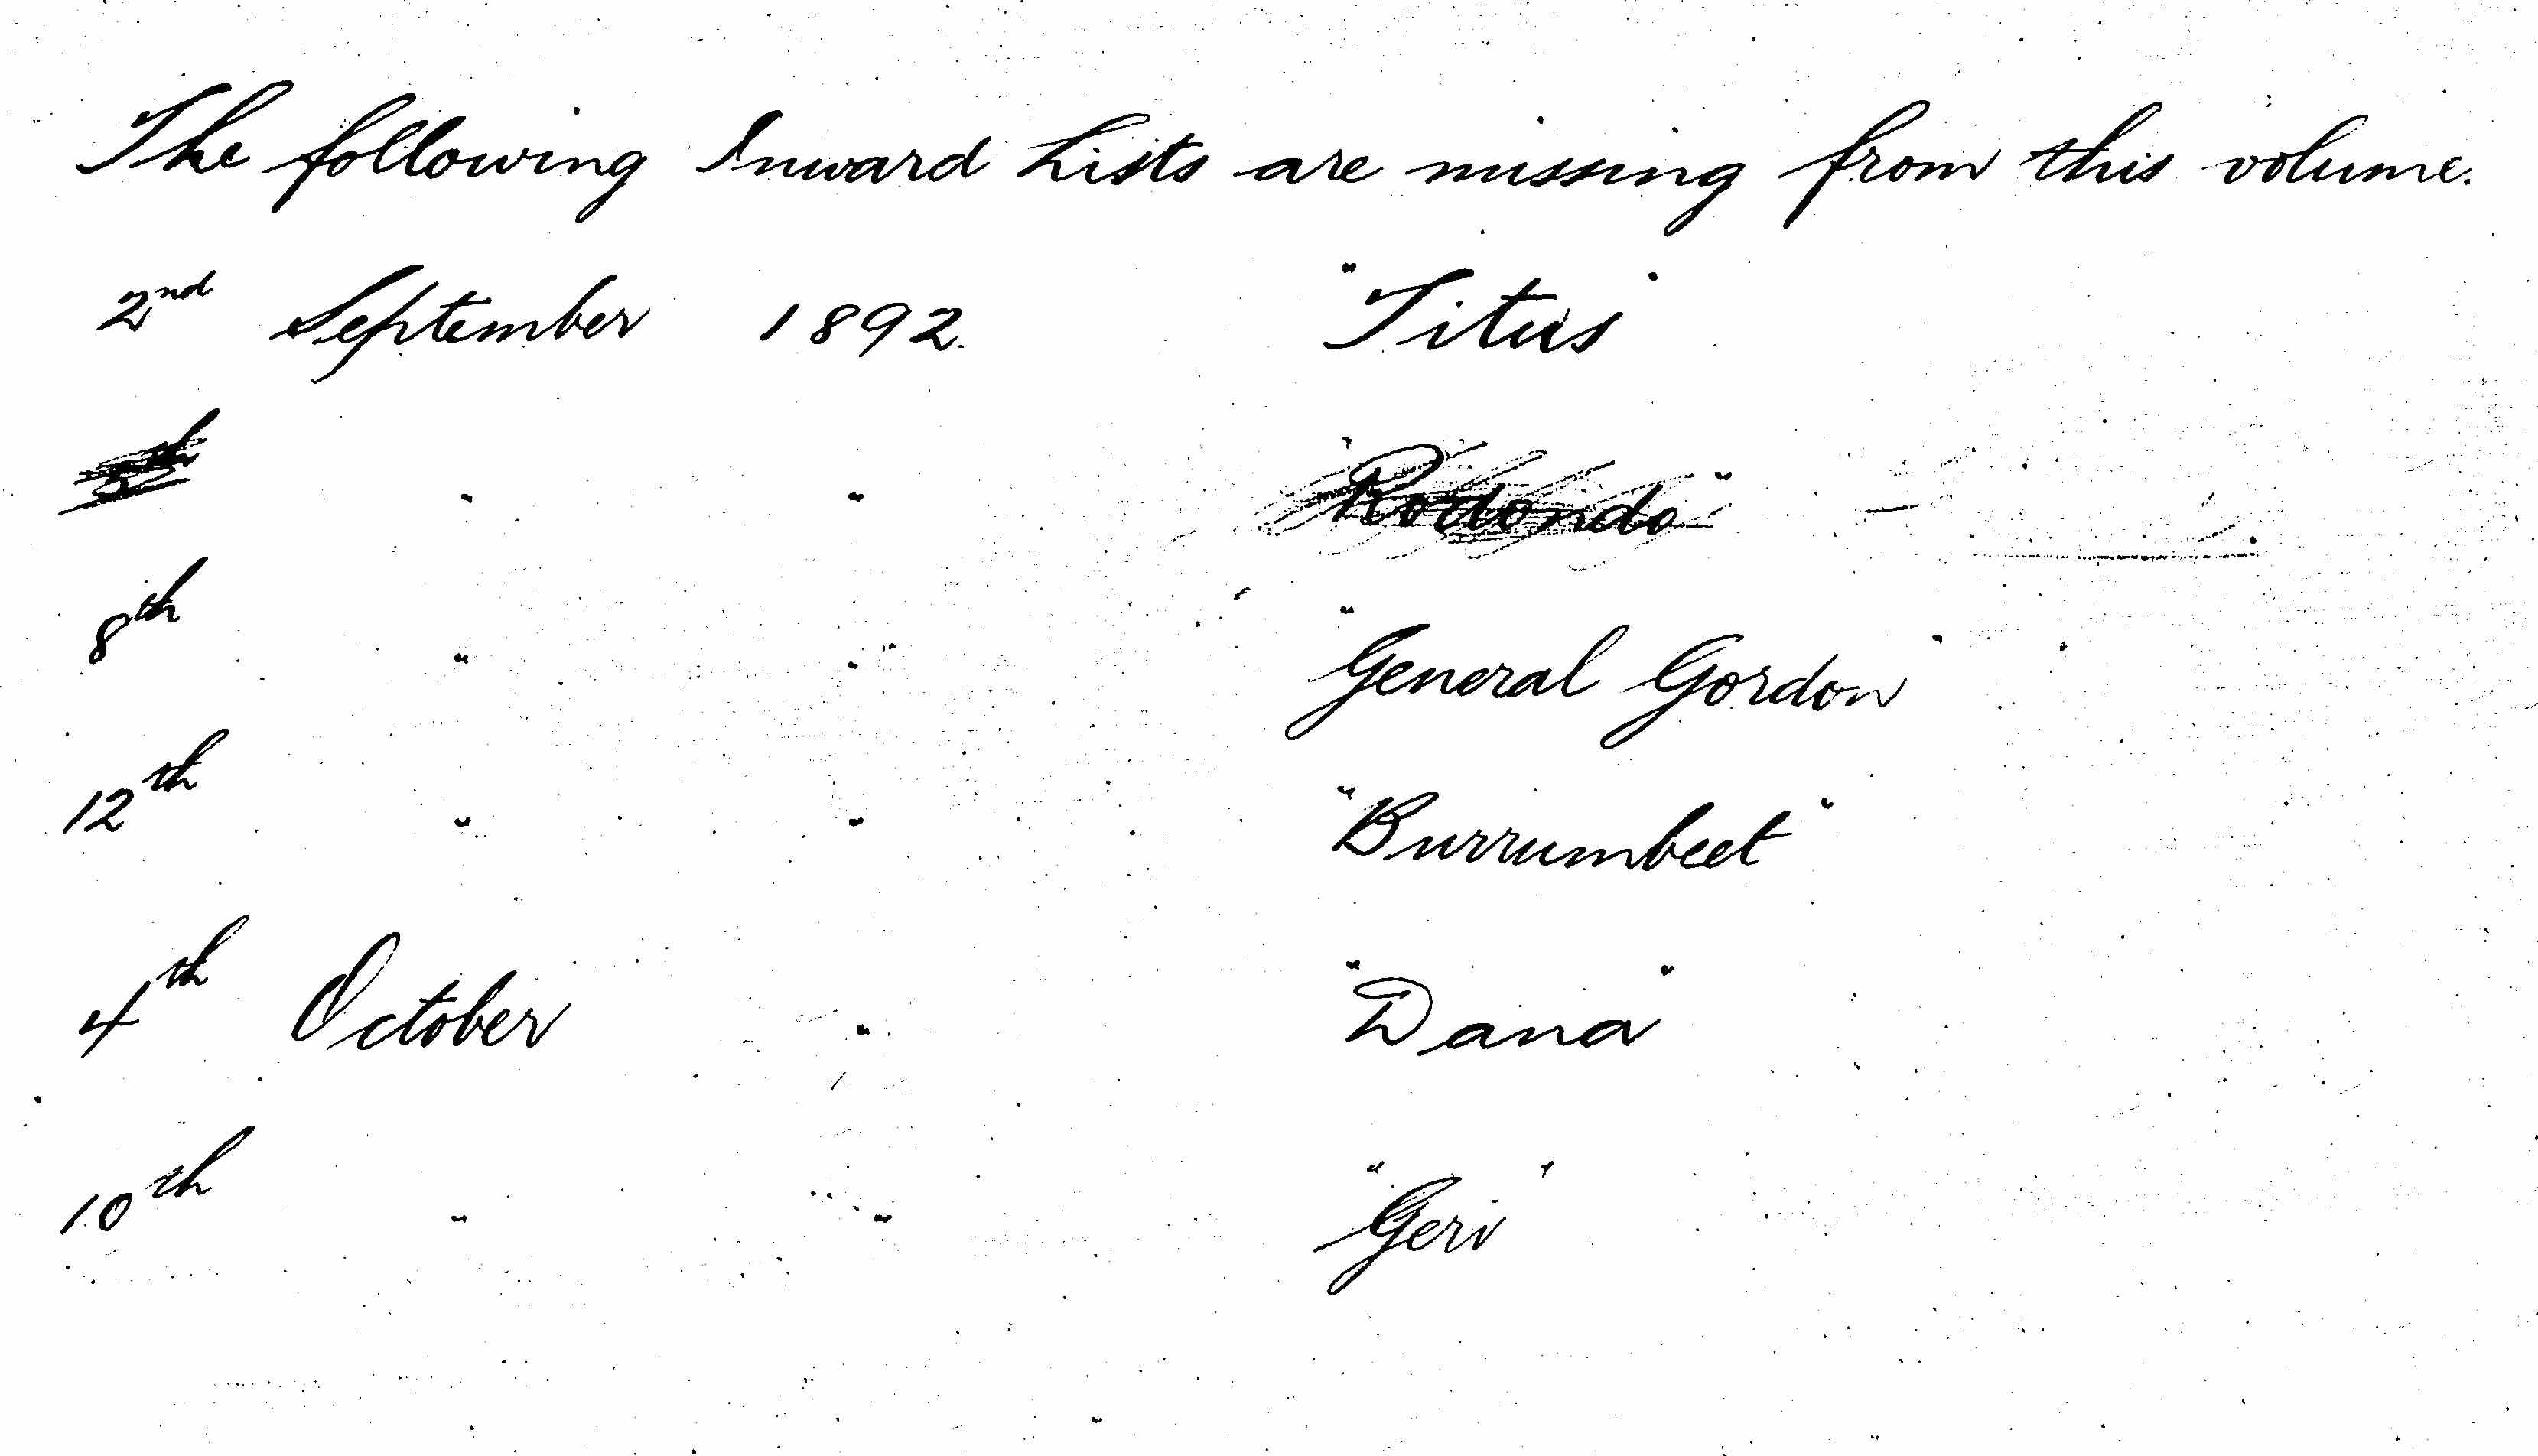 The following Inward Lists are missing from this volume.
2nd September 1892. "Titus"
5th " " "Rodondo"
8th " " "General Gordon"
12th " " "Burrumbeet"
4th October " "Dana"
10th " " "Geri"